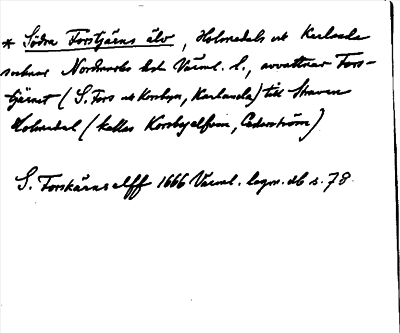 * Södra Forstjärns älv, Holmedals ok Karlanda
socknar Nordmarks hd Värml. l., avvattnar Fors-
tjärnet (S. Fors ok Korsbyn, Karlanda) till
Holmedal (kallas Korsbyelfven, Cederström)
S. Forskärns elff 1666 Värml. lagm. db s. 78.